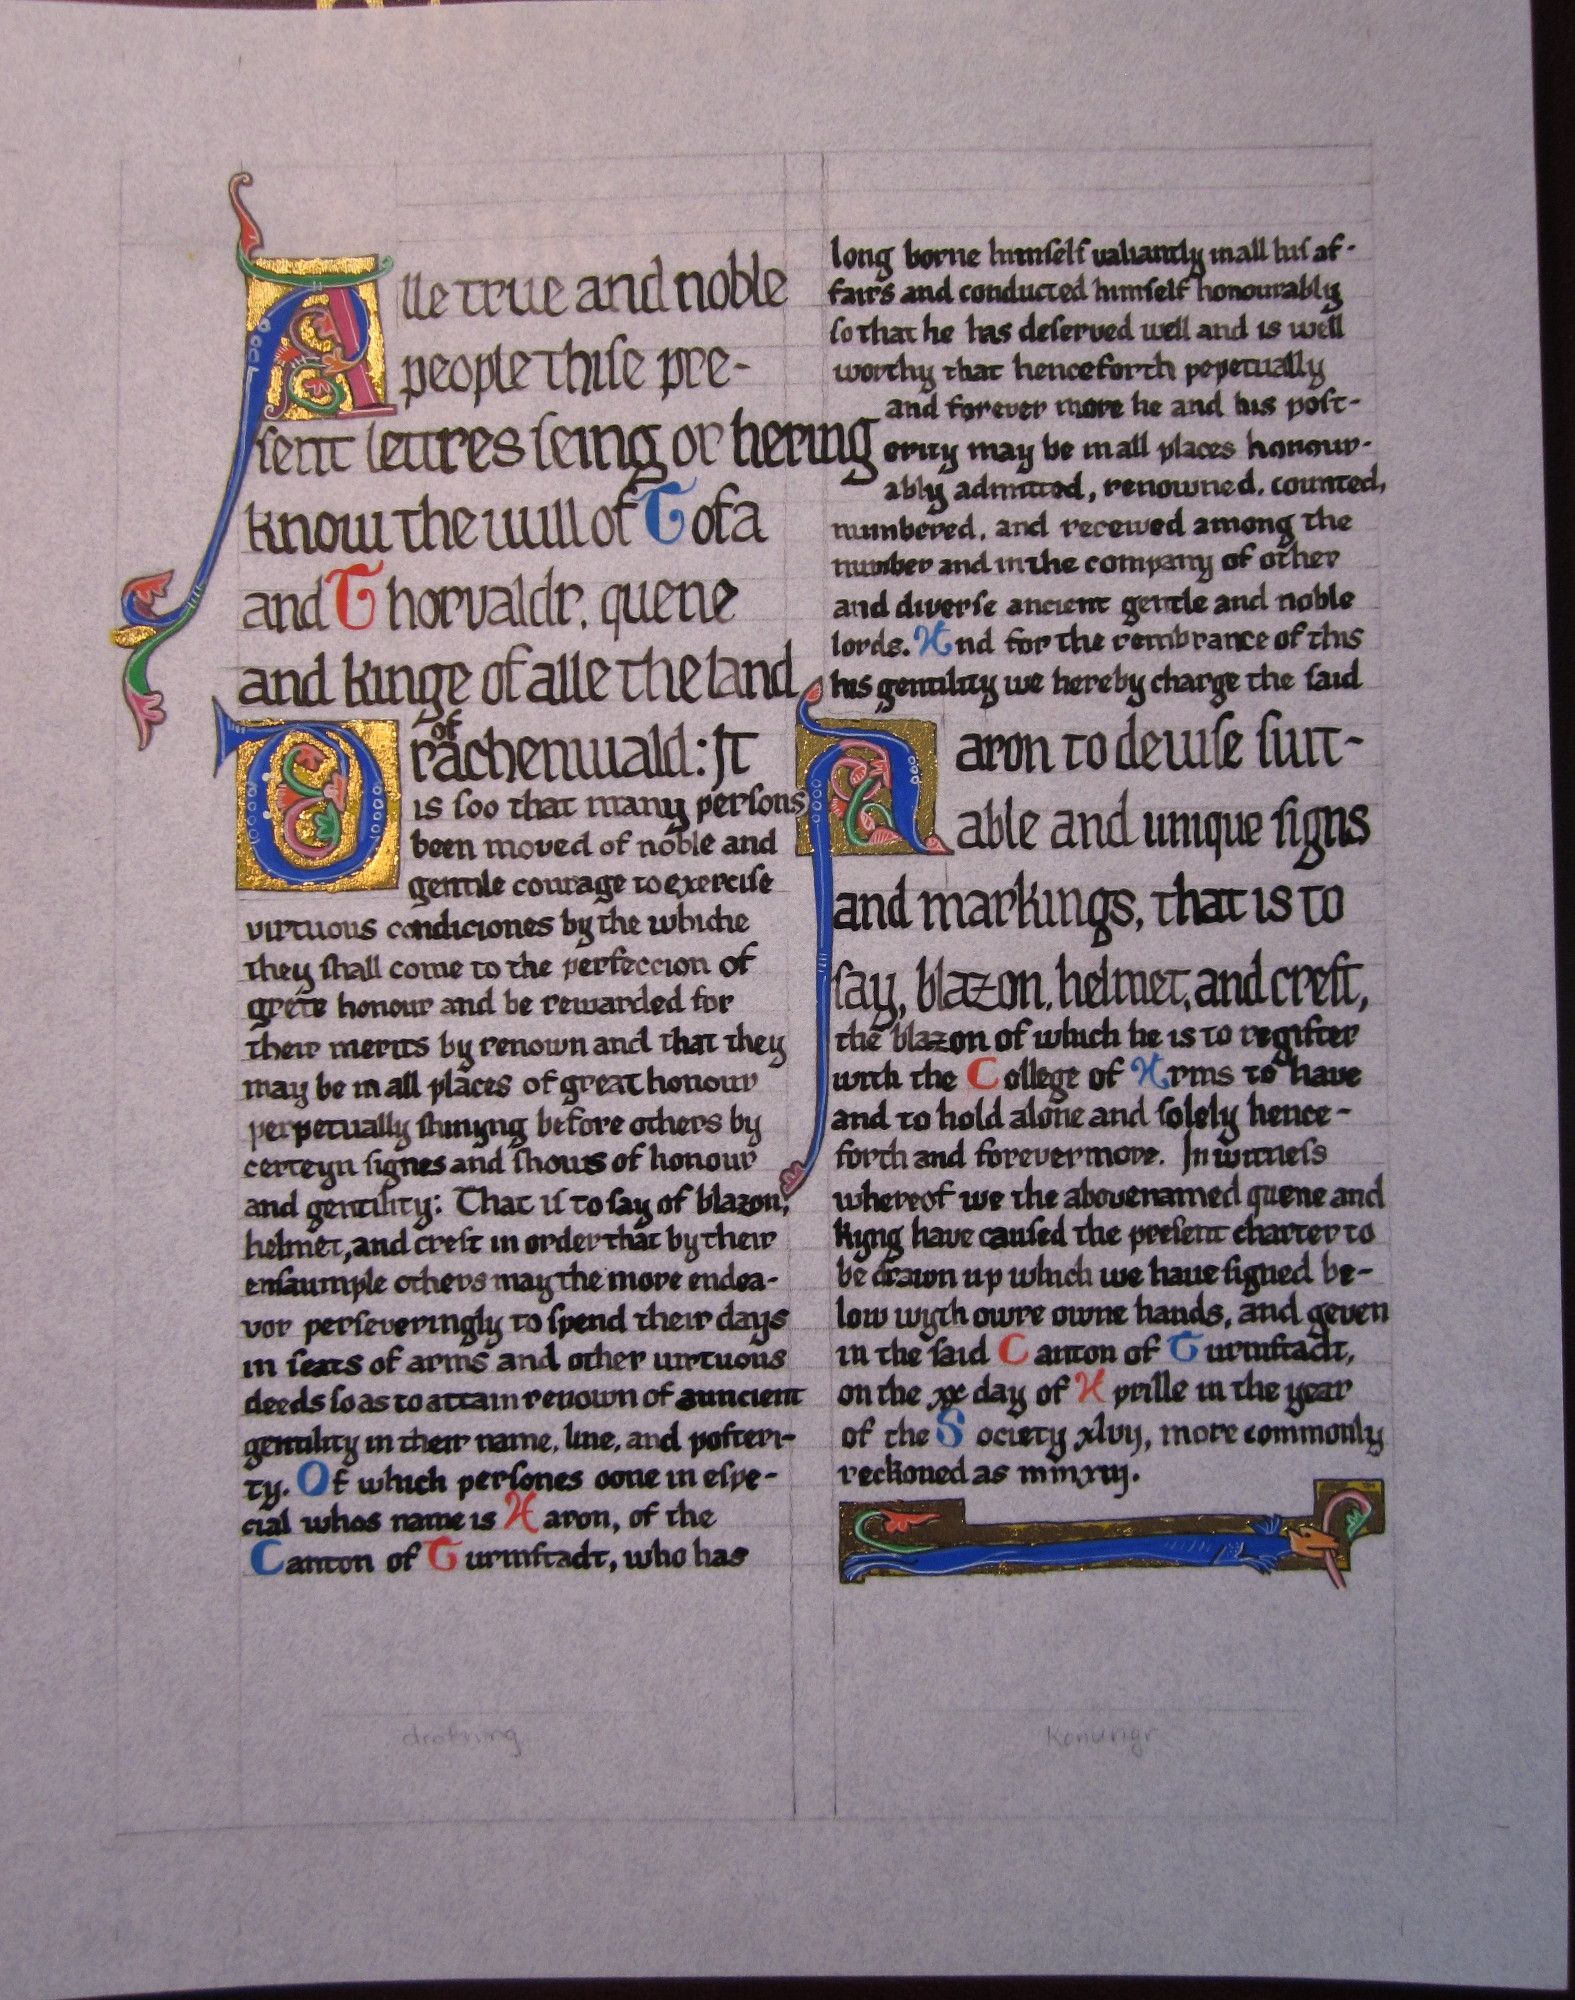 Alle true and noble
people thise pre-
sent lettres seing or hering
know the will of Tofa
and Thorvaldr, quene
and kinge of alle the land
of
Drachenwald: It
is soo that many persons
been moved of noble and
gentile courage to exercise
virtuous condiciones by the whiche
they shall come to the perfeccion of
grete honour and be rewarded for
their merits by renown and that they
may be in all places of great honour
perpetually shinyng before others by
certeyn signes and shows of honour
and gentility: That is to say of blazon,
helmet, and crest in order that by their
ensaumple others may the more endea-
vor perseveringly to spend their days
in feats of arms and other virtuous
deeds so as to attain renown of auncient
gentility in their name, line, and posteri-
ty. Of which persones oone in espe-
cial whos name is Aaron, of the
Canton of Turmstadt, who has
long borne himself valiantly in all his af-
fairs and conducted himself honourably
so that he has deserved well and is well
worthy that henceforth pepetually
and forever more he and his post-
erity may be in all places honour-
ably admitted, renowned, counted,
numbered, and received among the
number and in the company of other
and diverse ancient gentle and noble
lords. And for the rembrance of this
his gentility we hereby charge the said
Aaron to devise suit-
able and unique signs
and markings, that is to
say, blazon, helmet, and crest,
the blazon of which he is to register
with the College of Arms to have
and to hold alone and solely hence-
forth and forevermore. In witness
whereof we the abovenamed quene and
kyng have caused the present charter to
be drawn up which we have signed be-
low wyth owre owne hands, and geven
in the said Canton of Turmstadt,
on the xx day of Aprille in the year
of the Society xlvij, more commonly
reckoned as mmxiij.
drotning
Konungr